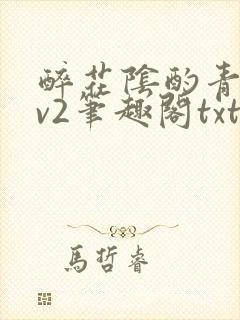 醉花陰酌青
v2筆趣閣txt
馬哲睿